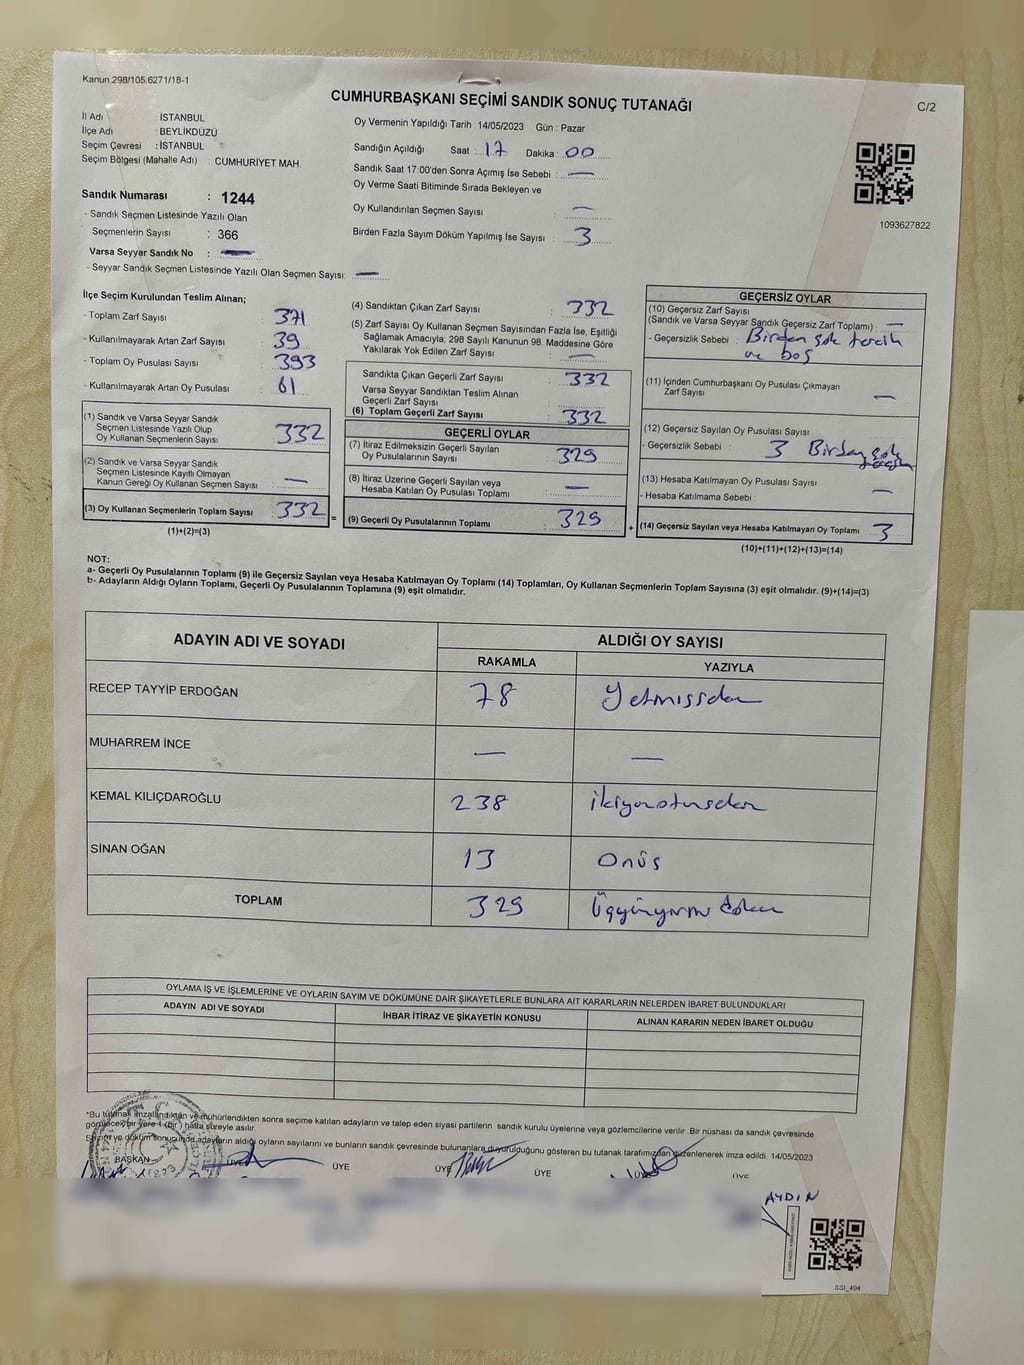 Kanun.298/105.6271/18-1
CUMHURBAŞKANI SEÇİMİ SANDIK SONUÇ TUTANAĞI
C/2
İl Adı : İSTANBUL
İlçe Adı : BEYLİKDÜZÜ
Seçim Çevresi : İSTANBUL
Seçim Bölgesi (Mahalle Adı) : CUMHURİYET MAH.
Sandık Numarası : 1244
- Sandık Seçmen Listesinde Yazılı Olan
Seçmenlerin Sayısı : 366
Varsa Seyyar Sandık No : —
- Seyyar Sandık Seçmen Listesinde Yazılı Olan Seçmen Sayısı: —
Oy Vermenin Yapıldığı Tarih : 14/05/2023 Gün : Pazar
Sandığın Açıldığı Saat : 17 Dakika : 00
Sandık Saat 17:00'den Sonra Açımış İse Sebebi : —
Oy Verme Saati Bitiminde Sırada Bekleyen ve
Oy Kullandırılan Seçmen Sayısı : —
Birden Fazla Sayım Döküm Yapılmış İse Sayısı : 3
1093627822
İlçe Seçim Kurulundan Teslim Alınan;
- Toplam Zarf Sayısı : 371
- Kullanılmayarak Artan Zarf Sayısı : 39
- Toplam Oy Pusulası Sayısı : 393
- Kullanılmayarak Artan Oy Pusulası : 61
(1) Sandık ve Varsa Seyyar Sandık
Seçmen Listesinde Yazılı Olup
Oy Kullanan Seçmenlerin Sayısı : 332
(2) Sandık ve Varsa Seyyar Sandık
Seçmen Listesinde Kayıtlı Olmayan
Kanun Gereği Oy Kullanan Seçmen Sayısı : —
(3) Oy Kullanan Seçmenlerin Toplam Sayısı : 332 =
(1)+(2)=(3)
(4) Sandıktan Çıkan Zarf Sayısı : 332
(5) Zarf Sayısı Oy Kullanan Seçmen Sayısından Fazla İse, Eşitliği
Sağlamak Amacıyla; 298 Sayılı Kanunun 98. Maddesine Göre
Yakılarak Yok Edilen Zarf Sayısı : —
Sandıkta Çıkan Geçerli Zarf Sayısı : 332
Varsa Seyyar Sandıktan Teslim Alınan
Geçerli Zarf Sayısı :
(6) Toplam Geçerli Zarf Sayısı : 332
GEÇERLİ OYLAR
(7) İtiraz Edilmeksizin Geçerli Sayılan
Oy Pusulalarının Sayısı : 329
(8) İtiraz Üzerine Geçerli Sayılan veya
Hesaba Katılan Oy Pusulası Toplamı : —
(9) Geçerli Oy Pusulalarının Toplamı : 329 +
GEÇERSİZ OYLAR
(10) Geçersiz Zarf Sayısı
(Sandık ve Varsa Seyyar Sandık Geçersiz Zarf Toplamı) : —
- Geçersizlik Sebebi : Birden çok tercih
ve boş
(11) İçinden Cumhurbaşkanı Oy Pusulası Çıkmayan
Zarf Sayısı : —
(12) Geçersiz Sayılan Oy Pusulası Sayısı
- Geçersizlik Sebebi : 3 Birden çok
tercih
(13) Hesaba Katılmayan Oy Pusulası Sayısı : —
- Hesaba Katılmama Sebebi :
(14) Geçersiz Sayılan veya Hesaba Katılmayan Oy Toplamı : 3
(10)+(11)+(12)+(13)=(14)
NOT:
a- Geçerli Oy Pusulalarının Toplamı (9) ile Geçersiz Sayılan veya Hesaba Katılmayan Oy Toplamı (14) Toplamları, Oy Kullanan Seçmenlerin Toplam Sayısına (3) eşit olmalıdır. (9)+(14)=(3)
b- Adayların Aldığı Oyların Toplamı, Geçerli Oy Pusulalarının Toplamına (9) eşit olmalıdır.
ADAYIN ADI VE SOYADI
ALDIĞI OY SAYISI
RAKAMLA YAZIYLA
RECEP TAYYİP ERDOĞAN 78 Yetmişsekiz
MUHARREM İNCE — —
KEMAL KILIÇDAROĞLU 238 ikiyüzotuzsekiz
SİNAN OĞAN 13 Onüç
TOPLAM 329 Üçyüzyirmi dokuz
OYLAMA İŞ VE İŞLEMLERİNE VE OYLARIN SAYIM VE DÖKÜMÜNE DAİR ŞİKAYETLERLE BUNLARA AİT KARARLARIN NELERDEN İBARET BULUNDUKLARI
ADAYIN ADI VE SOYADI İHBAR İTİRAZ VE ŞİKAYETİN KONUSU ALINAN KARARIN NEDEN İBARET OLDUĞU
*Bu tutanak imzalandıktan ve mühürlendikten sonra seçime katılan adayların ve talep eden siyasi partilerin sandık kurulu üyelerine veya gözlemcilerine verilir. Bir nüshası da sandık çevresinde
görülecek bir yere 1 (bir) hafta süreyle asılır.
Sayım ve döküm sonucunda adayların aldığı oyların sayılarını ve bunların sandık çevresinde bulunanlara duyurulduğunu gösteren bu tutanak tarafımızdan düzenlenerek imza edildi. 14/05/2023
BAŞKAN ÜYE ÜYE ÜYE ÜYE ÜYE ÜYE
AYDIN
SSI_494